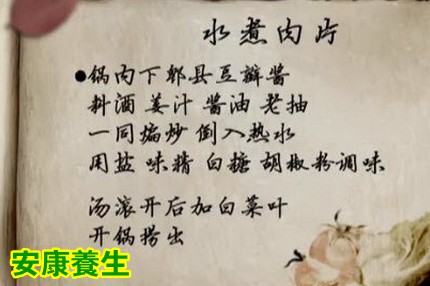 水煮肉片
●锅内下郫县豆瓣酱
料酒 姜汁 酱油 老抽
一同煸炒 倒入热水
用盐 味精 白糖 胡椒粉调味
汤滚开后加白菜叶
开锅捞出
安康養生